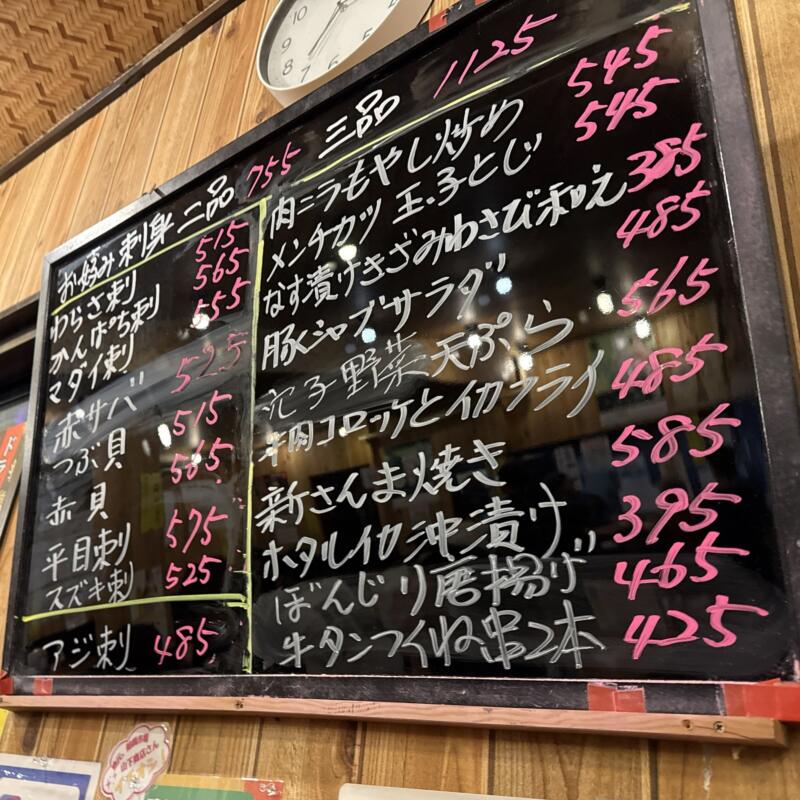 お好み刺身 二品 755 三品 1125
わらさ刺 515
かんぱち刺 565
マダイ刺 555
赤サバ 525
つぶ貝 515
赤貝 565
平目刺 575
スズキ刺 525
アジ刺 485
肉ニラもやし炒め 545
メンチカツ玉子とじ 545
なす漬けきざみわさび和え 385
豚しゃぶサラダ 485
穴子野菜天ぷら 565
牛肉コロッケとイカフライ 485
新さんま焼き 585
ホタルイカ沖漬け 395
ぼんじり唐揚げ 465
牛タンツイね串2本 425